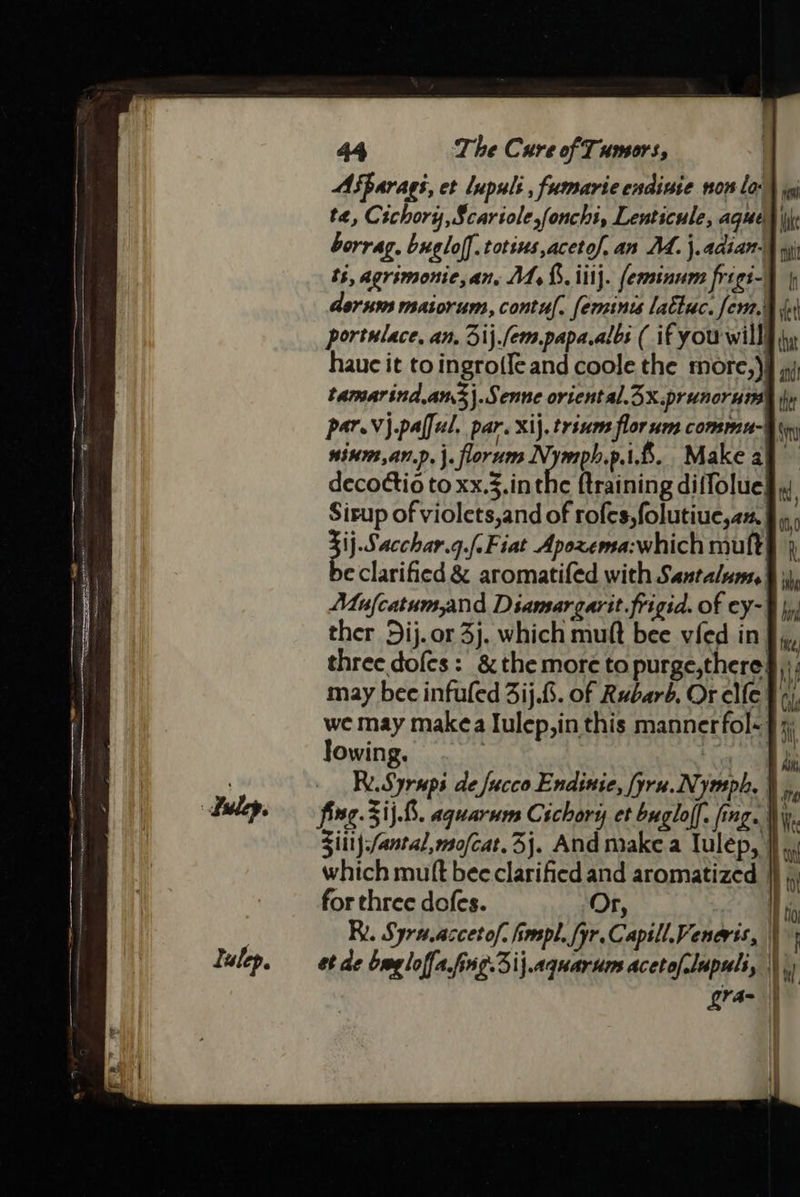 44 The Cure of Tumors,
Aſparagi, et lupuli, fumarie endivie non lo-
tæ, Cichorij, Scariole, ſonchi, Lenticule, aque
borrag. bugloſſ. totius, acetoſ. an M. j. adian-
ti, agrimonie, an. M. ß. iiij. ſeminum frigi-
dorum maiorum, contuſ. ſeminis lactuc. ſem.
portulace, an. ʒij. ſem. papa. albi ( if you will
haue it to ingroſſe and coole the more,)
tamarind. an. ℥j. Senne oriental. ʒx. prunorum
par. vj. paſſul. par. xij. trium florum commu-
nium, an. p. j. florum Nymph. p. i. ß. Make a
decoctiō to xx. ℥. in the ſtraining diſſolue
Sirup of violets, and of roſes, ſolutiue, an.
℥ij. Sacchar. q. ſ. Fiat Apozema: which muſt
be clarified & aromatiſed with Santalum,
Muſcatum, and Diamargarit. frigid. of ey-
ther ℈ij. or ʒj. which muſt bee vſed in
three doſes: & the more to purge, there
may bee infuſed ʒij. ß. of Rubarb. Or elſe
we may make a Iulep, in this manner fol-
lowing.
Iulep.
℞. Syrupi de ſucco Endivie, ſyru. Nymph.
ſing. ℥ij. ß. aquarum Cichorij et bugloſſ. ſing.
℥iiij. ſantal, moſcat. ʒj. And make a Iulep,
which muſt bee clarified and aromatized
for three doſes. Or,
Iulep.
℞. Syru. accetoſ. ſimpl. ſyr. Capill. Veneris,
et de bugloſſa. ſing. ʒij. aquarum acetoſ. lupuli,
gra-